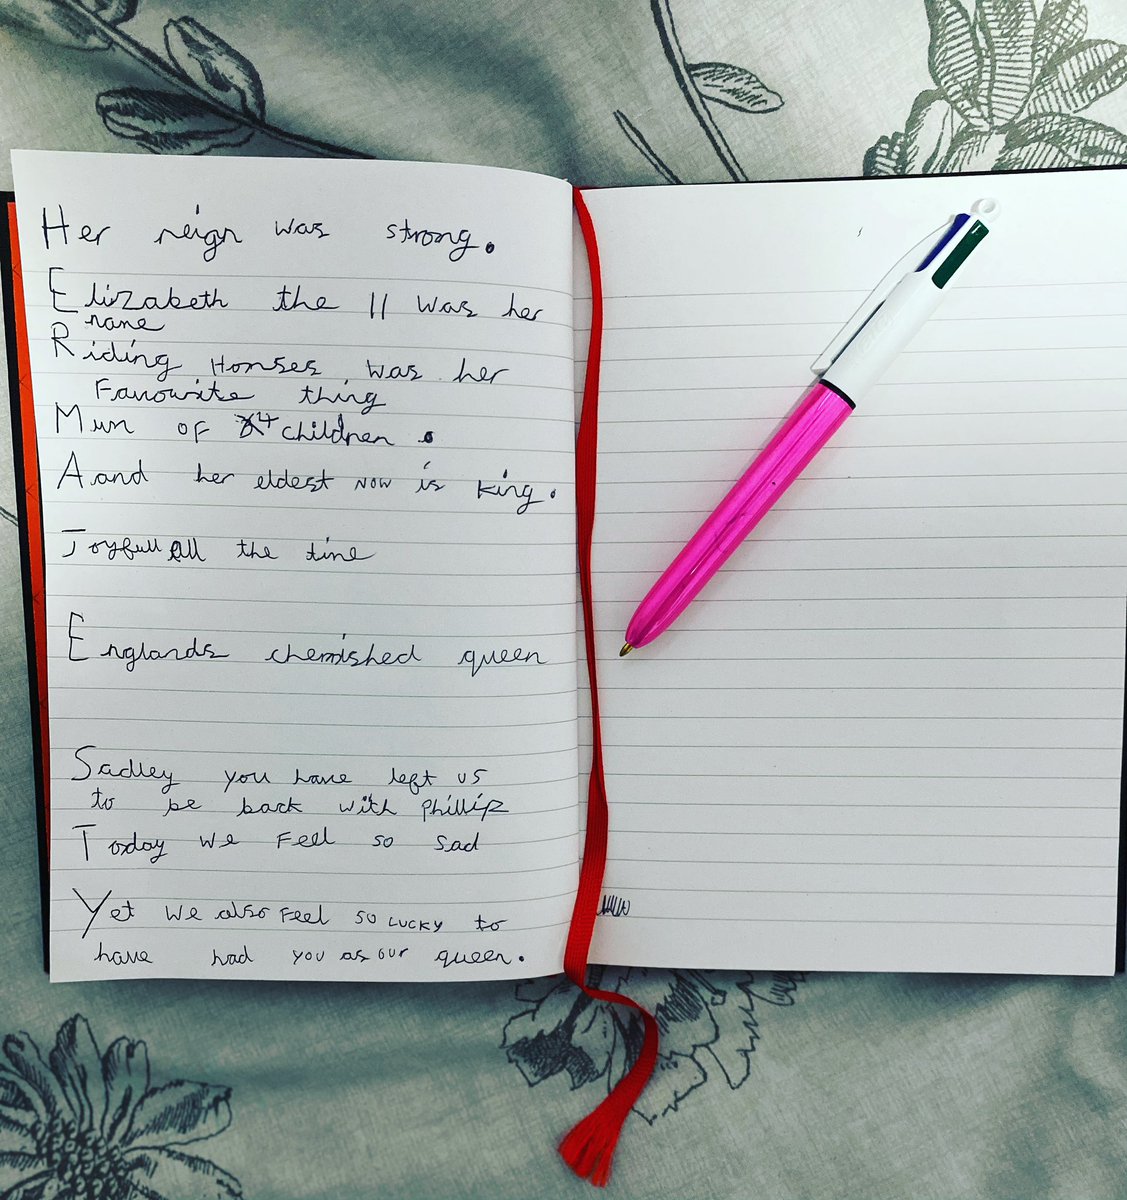 Her reign was strong.
Elizabeth the II was her
name
Riding Horses was her
Favourite thing
Mum of 4 children.
Aand her eldest now is king.
Joyfull all the time
Englands cherished queen
Sadley you have left us
to be back with phillip
Today we Feel so sad
Yet we also Feel so LUCKY to
have had you as our queen.